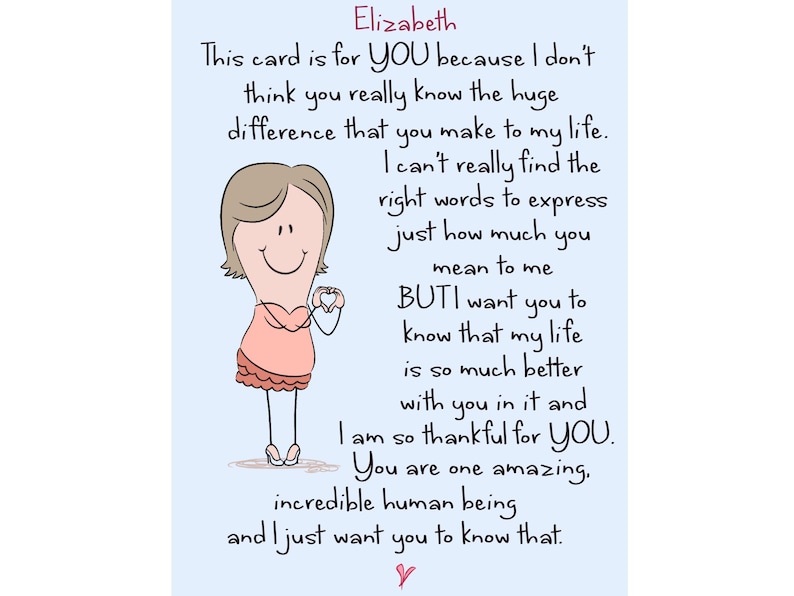 Elizabeth
This card is for YOU because I don't
think you really know the huge
difference that you make to my life.
I can't really find the
right words to express
just how much you
mean to me
BUT I want you to
know that my life
is so much better
with you in it and
I am so thankful for YOU.
You are one amazing,
incredible human being
and I just want you to know that.